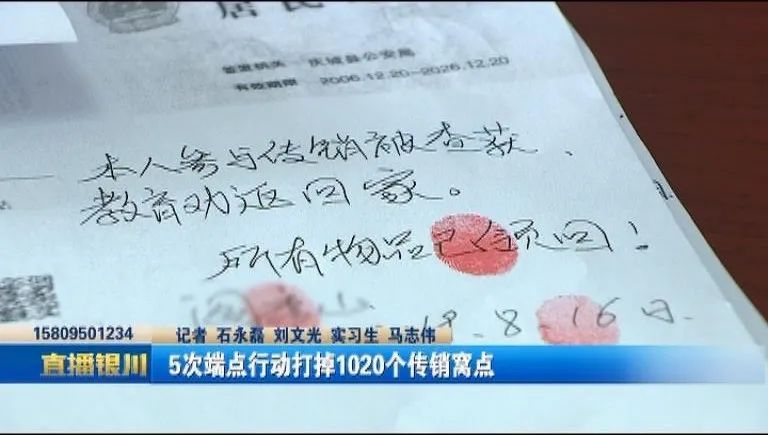 居民
签发机关 庆城县公安局
有效期限 2006.12.20-2026.12.20
本人参与传销被查获、
教育劝返回家。
所有物品已领回!
18.8 16日.
15809501234
记者 石永磊 刘文光 实习生 马志伟
直播银川
5次端点行动打掉1020个传销窝点